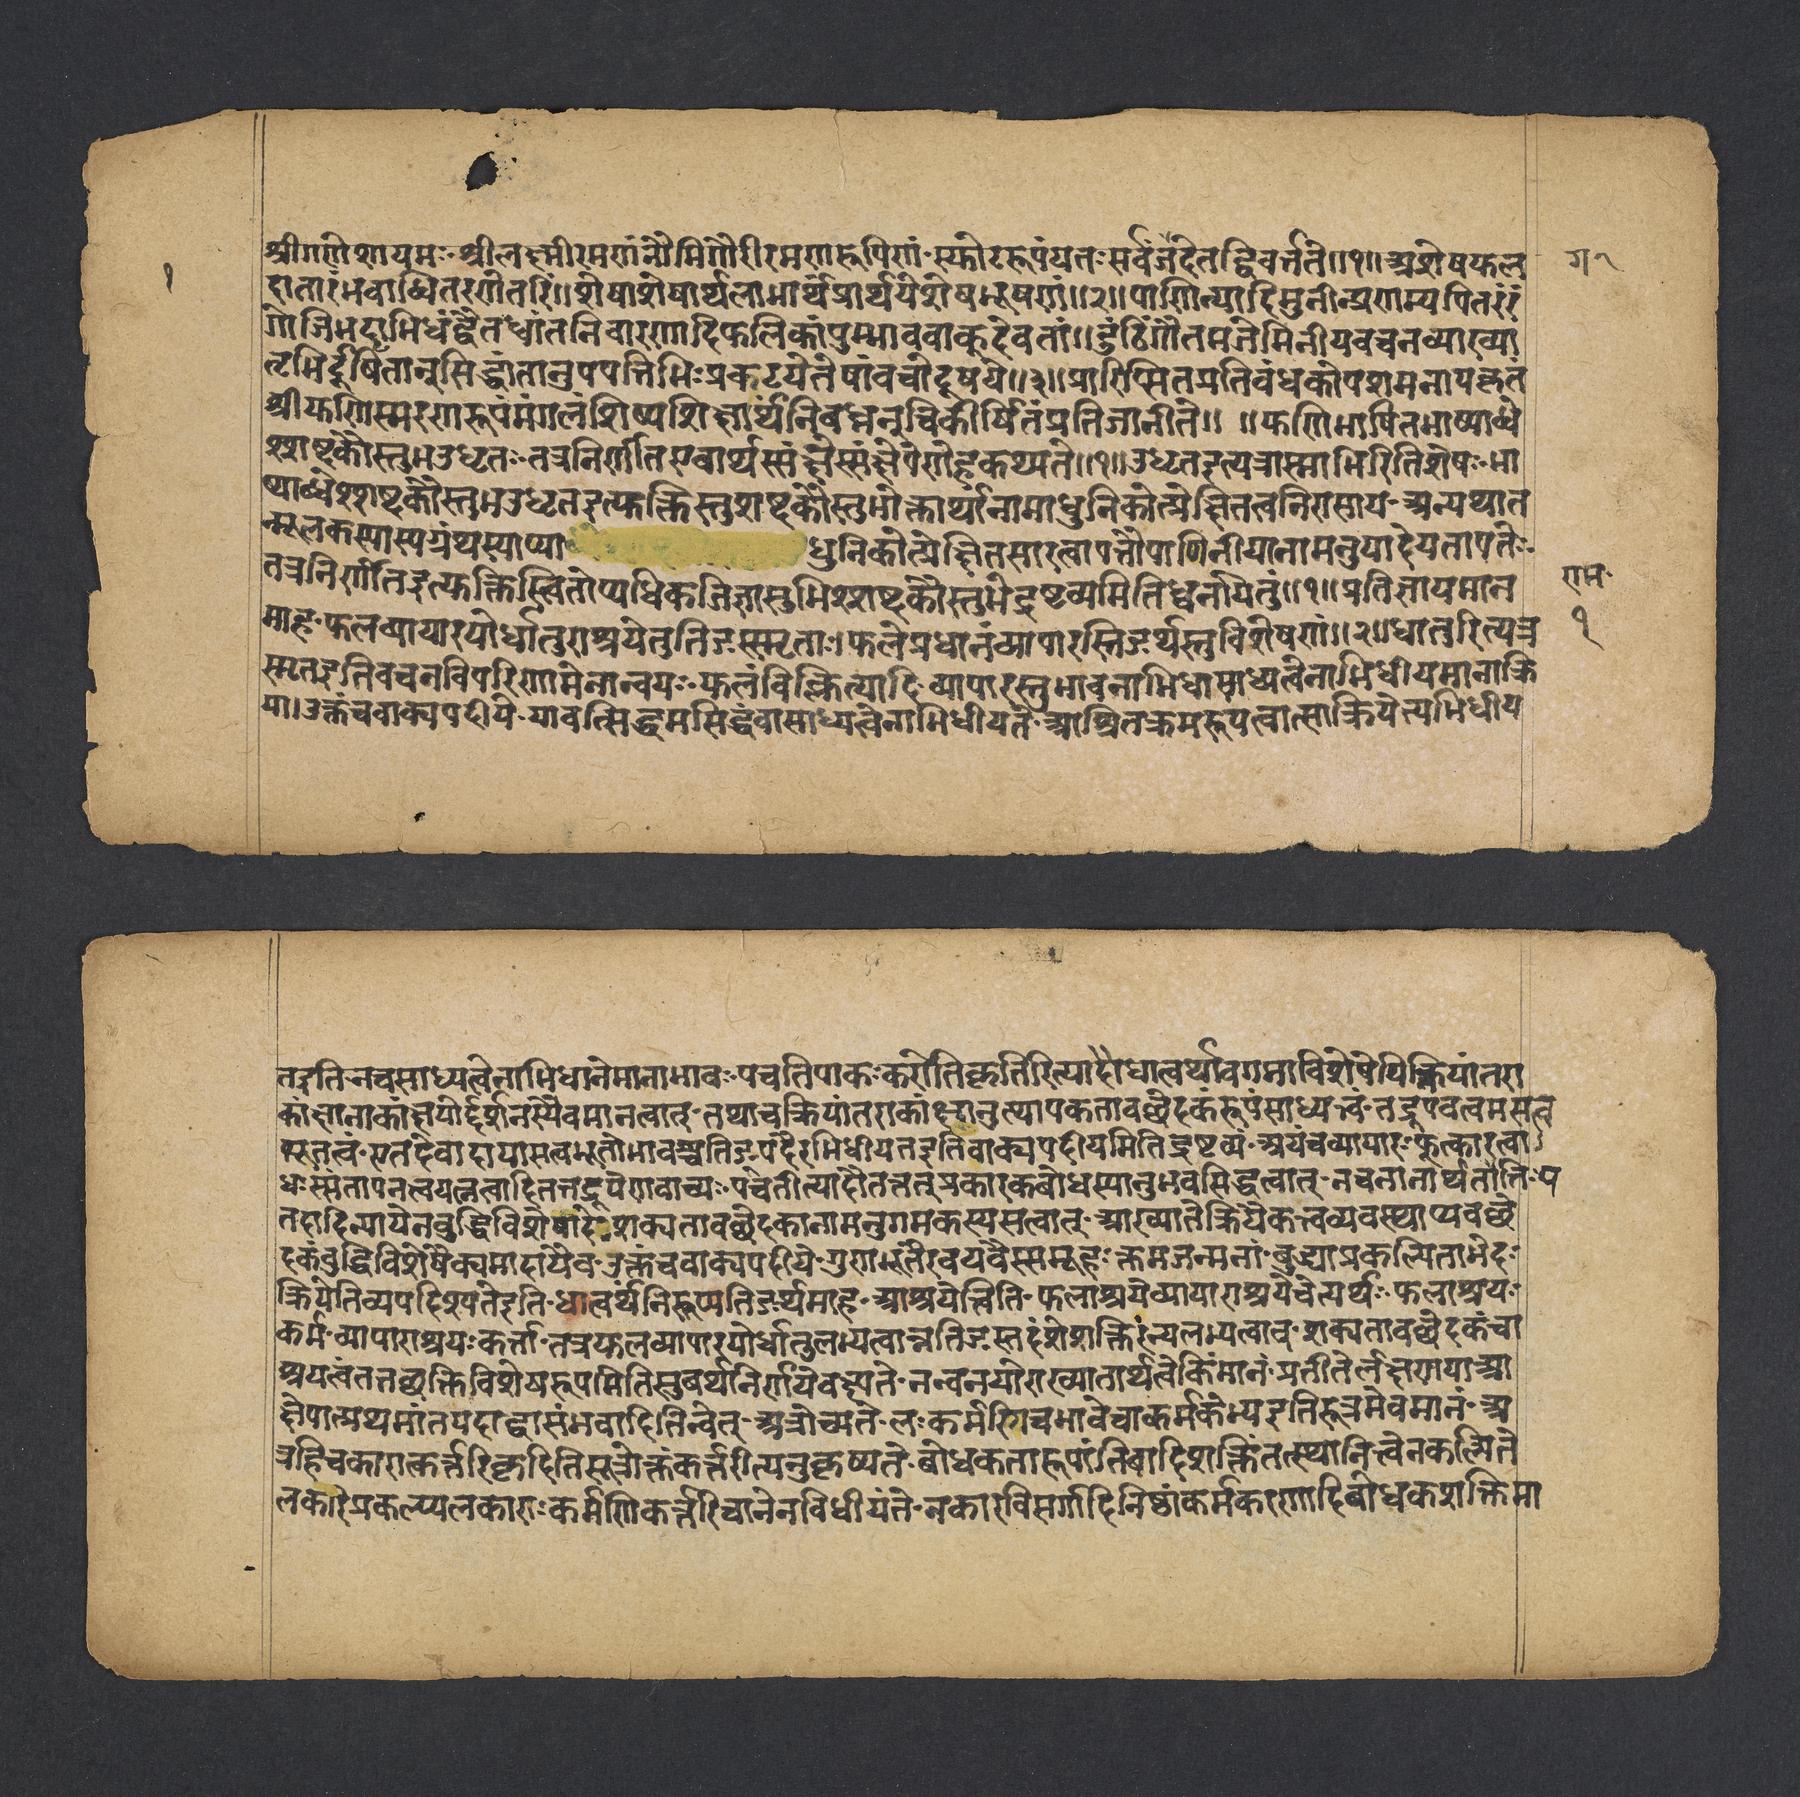 श्रीगणेशायमः श्रीलक्ष्मीरमणंनौमिगौरीरमणरूपिणं स्फोटरूपंयतः सर्वंजगदेतद्विवर्त्तते॥१॥अशेषफल
ग२
१
दातारंभवाब्धितरणेतरिं॥शेषाशेषार्थलाभार्थंप्रार्थयेशेषभूषणं॥२॥पाणिन्यादिमुनीन्प्रणम्यपितरंरं
गोजिभट्टाभिधंद्वैतध्वांतनिवारणादिफलिकांपुम्भाववाक्देवतां॥ढुंढिंगौतमजैमिनीयवचनव्याख्या
तृभिर्दूषितान्सिद्धांतानुपपत्तिभिःप्रकटयेतेषांवचोदूषये॥३॥प्रारिप्सितप्रतिबंधकोपशमनायकृतं
श्रीफणिस्मरणरूपंमंगलंशिष्यशिक्षार्थंनिबध्नन्चिकीर्षितंप्रतिजानीते॥ ॥फणिभाषितभाष्याब्धे
श्शब्दकौस्तुभउधृतः तत्रनिर्णीतएवार्थस्संक्षेपेणेहकथ्यते॥१॥उधृतइत्यत्रास्माभिरितिशेषः भा
ष्याब्धेश्शब्दकौस्तुभउधृतइत्युक्तिस्तुशब्दकौस्तुभोक्तार्थानामाधुनिकोत्प्रेक्षितत्वनिरासाय अन्यथात
न्मूलकस्यास्यग्रंथस्याप्या धुनिकोत्प्रेक्षितसारत्वापत्तौपाणिनीयानामनुपादेयतापत्तेः
तत्रनिर्णीतइत्युक्तिस्त्वितोप्यधिकजिज्ञासुभिश्शब्दकौस्तुभेद्रष्टव्यमितिध्वनयितुं॥१॥प्रतिज्ञायमान
राम
१
माह फलव्यापारयोर्धातुराश्रयेतुतिङःस्मृताः फलेप्रधानंव्यापारस्तिङर्थस्तुविशेषणं॥२॥धातुरित्यत्र
स्मृतइतिवचनविपरिणामेनान्वयः फलंविक्लित्यादि व्यापारस्तुभावनाभिधासाध्यत्वेनाभिधीयमानाक्रि
या।उक्तंचवाक्यपदीये यावत्सिद्धमसिद्धंवासाध्यत्वेनाभिधीयते आश्रितक्रमरूपत्वात्साक्रियेत्यभिधीय
तइति नचसाध्यत्वेनाभिधानेमानाभावः पचतिपाकः करोतिकृतिरित्यादौधात्वर्थावगमाविशेषेपिक्रियांतरा
कांक्षानाकांक्षयोर्दर्शनस्यैवमानत्वात् तथाचक्रियांतराकांक्षानुत्थापकतावछेदकंरूपंसाध्यत्त्वं तद्रूपवत्वमसत्व
भूतत्वं एतदेवादायासत्वभूतोभावश्चतिङ्पदैरभिधीयतइतिवाक्यपदीयमितिद्रष्टव्यं अयंचव्यापारः फुत्कारत्वा
धःसंतापनत्वयत्नत्वादितत्तद्रूपेणवाच्यः पचतीत्यादौतत्तत्प्रकारकबोधस्यानुभवसिद्धत्वात् नचनानार्थतापत्तिः
तदादिन्यायेनबुद्धिविशेषादेःशक्यतावछेदकानामनुगमकस्यसत्वात् आख्यातेक्रियैकत्त्वव्यवस्थाप्यवछे
दकंबुद्धिविशेषैक्यमादायैव उक्तंचवाक्यपदीये गुणभूतैरवयवैस्समूहः क्रमजन्मनां बुद्ध्याप्रकल्पिताभेदः
क्रियेतिव्यपदिश्यतेइति धात्वर्थंनिरूप्यतिङर्थमाह आश्रयेत्विति फलाश्रयेव्यापाराश्रयेचेत्यर्थः फलाश्रयः
कर्म व्यापाराश्रयः कर्त्ता तत्रफलव्यापारयोर्धातुलभ्यत्वान्नतिङस्तदंशेशक्तिरन्यलभ्यत्वात् शक्यतावछेदकंचा
श्रयत्वंतत्तछक्तिविशेषरूपमितिसुबर्थनिर्णयेवक्ष्यते नन्वनयोराख्यातार्थत्वेकिंमानं प्रतीतेर्लक्षणयाआ
क्षेपात्प्रथमांतपदाद्वासंभवादितिचेत् अत्रोच्यते लः कर्मणिचभावेचाकर्मकेभ्यइतिसूत्रमेवमानं अ
त्रहिचकारात्कर्त्तरिकृदितिसूत्रोक्तंकर्त्तरीत्यनुकृष्यते बोधकतारूपांतिबादिशक्तिंतत्स्थानित्वेनकल्पिते
लकारेप्रकल्प्यलकाराः कर्मणिकर्त्तरिचानेनविधीयंते नकारविसर्गादिनिष्ठांकर्मकरणादिबोधकशक्तिमा